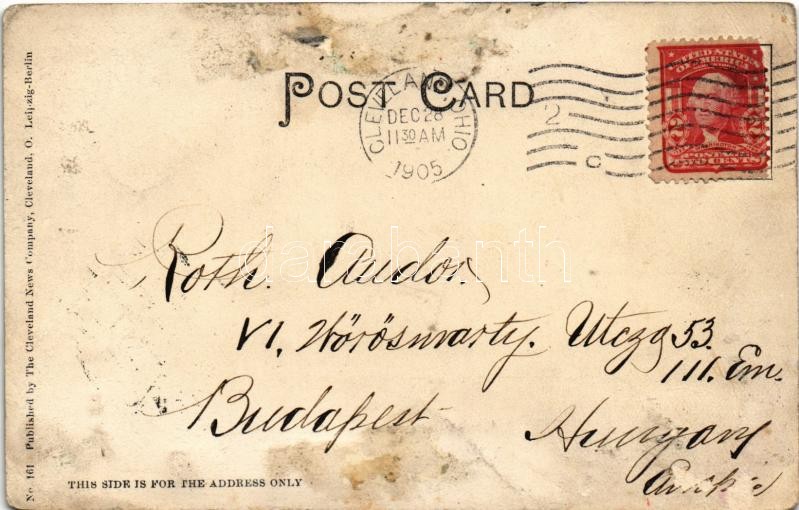 POST CARD
CLEVELAND, OHIO
DEC 28
11 30 AM
1905
2
C
UNITED STATES
OF AMERICA
2 2
POSTAGE
TWO CENTS
Roth. Andor
VI. Wörösmarty. Utcza 53.
III. Em.
Budapest
Hungary
THIS SIDE IS FOR THE ADDRESS ONLY
No. 161 Published by The Cleveland News Company, Cleveland, O. Leipzig-Berlin
darabanth